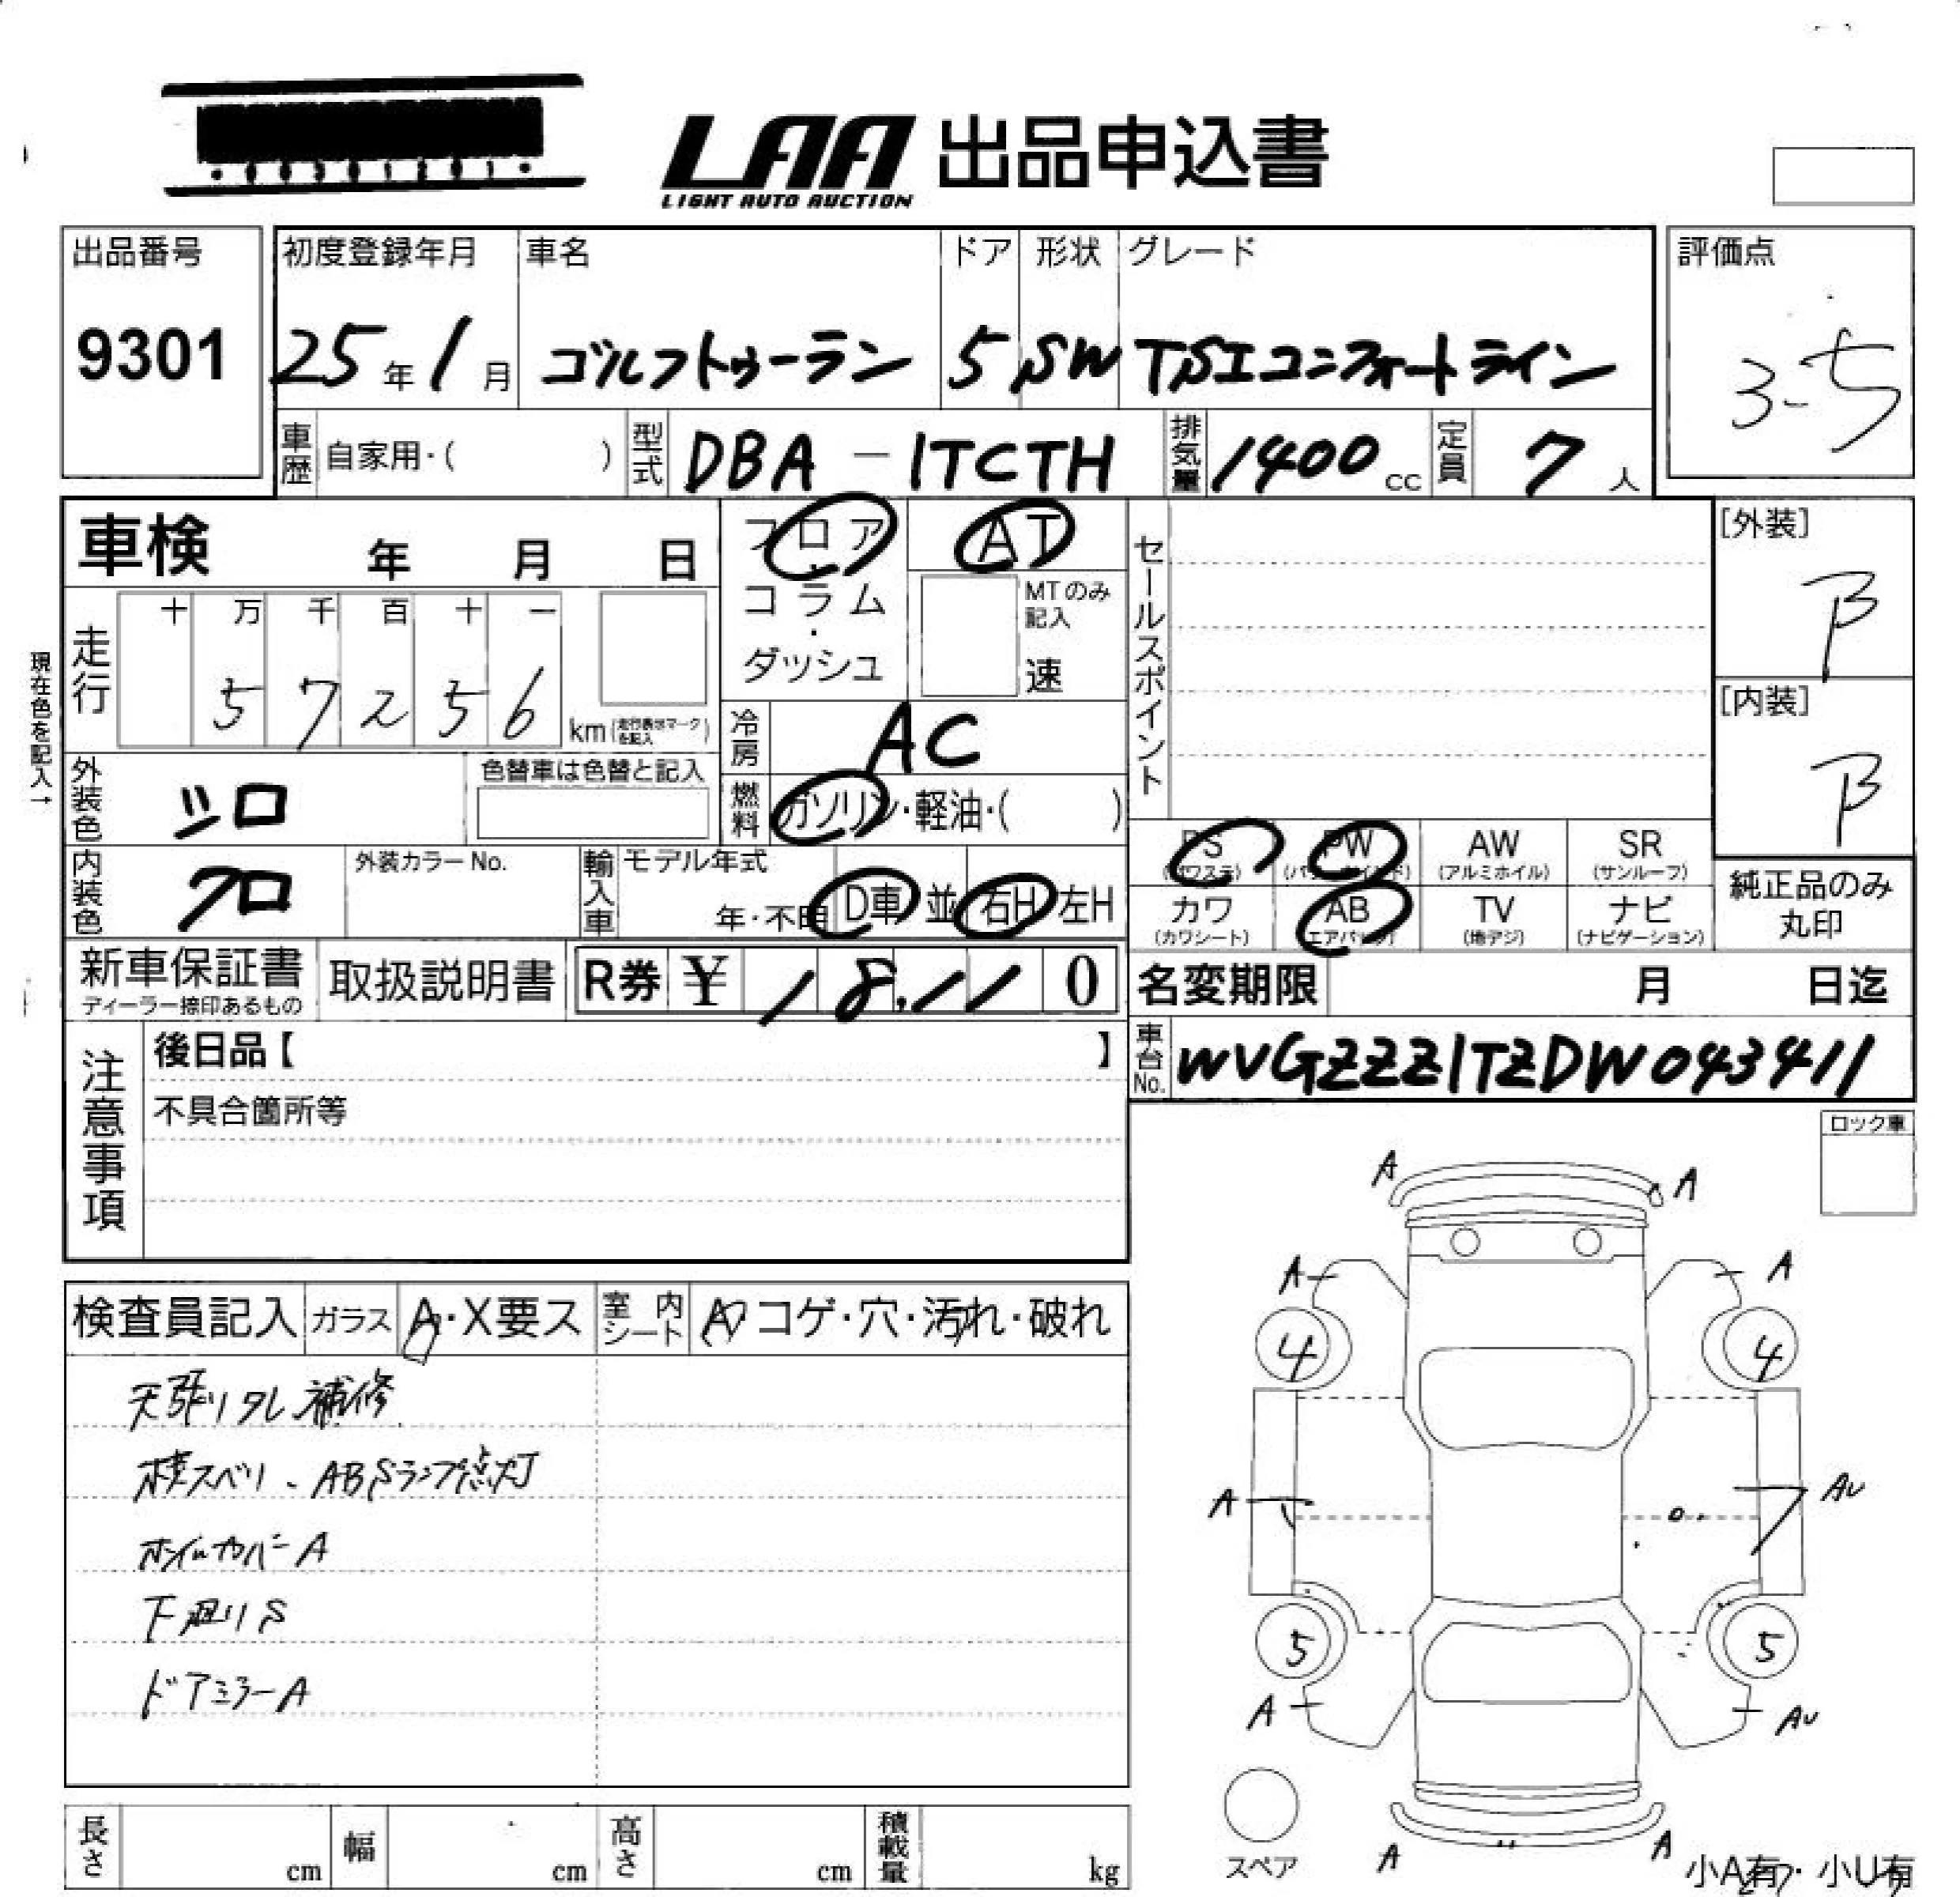 LAA 出品申込書
LIGHT AUTO AUCTION
出品番号 初度登録年月 車名 ドア 形状 グレード 評価点
9301 25年1月 ゴルフトゥーラン 5 SW TSIコンフォートライン 3-5
車歴 自家用・( ) 型式 DBA-1TCTH 排気量 1400cc 定員 7人
車検 年 月 日
フロア・コラム・ダッシュ AT
MTのみ記入 速
セールスポイント
[外装] B
[内装] B
現在色を記入→
走行 十 万 千 百 十 一
5 7 2 5 6 km(走行表示マークを記入)
冷房 AC
外装色 シロ 色替車は色替と記入
燃料 ガソリン・軽油・( )
PS (パワステ) PW (パワーウインド) AW (アルミホイル) SR (サンルーフ)
カワ (カワシート) AB (エアバッグ) TV (地デジ) ナビ (ナビゲーション)
純正品のみ丸印
内装色 クロ 外装カラーNo. 輸入車 モデル年式 年・不明 D車 並 右H 左H
新車保証書 ディーラー捺印あるもの 取扱説明書 R券 ¥ 18,110
名変期限 月 日迄
車台No. WVGZZZ1TZDW043411
注意事項 後日品【 】
不具合箇所等
ロック車
検査員記入 ガラス A・X要ス 室内シート コゲ・穴・汚れ・破れ
天張りタレ補修
スベリ、ABSランプ点灯
ホイルカバーA
下廻りS
ドアミラーA
A A
A A
4 4
A AU
5 5
A AU
A A
スペア
小A有・小U有
長さ cm 幅 cm 高さ cm 積載量 kg